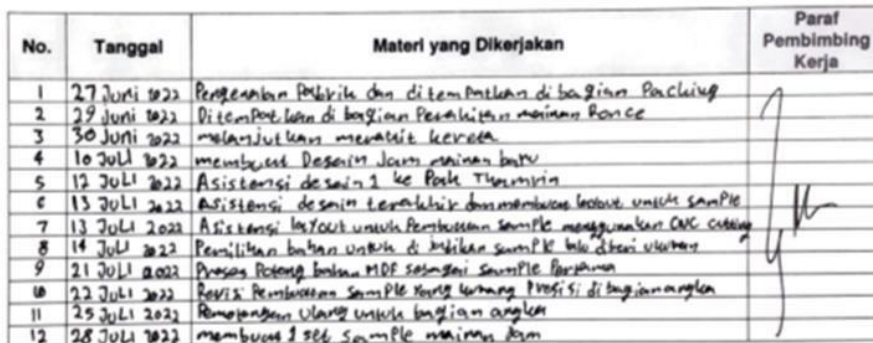 No. Tanggal Materi yang Dikerjakan Paraf Pembimbing Kerja
1 27 Juni 2022 Pengenalan Pabrik dan ditempatkan di bagian Packing
2 29 Juni 2022 Ditempatkan di bagian Perakitan mainan Ronce
3 30 Juni 2022 melanjutkan merakit kereta
4 10 JULI 2022 membuat Desain Jam mainan baru
5 12 JULI 2022 Asistensi desain 1 ke Pak Thamrin
6 13 JULI 2022 Asistensi desain terakhir dan membuat layout untuk samPle
7 13 JULI 2022 Asistensi layout untuk Pembuatan sample menggunakan CNC cutting
8 14 JULI 2022 Pemilihan bahan untuk di jadikan samPle lalu diberi ukuran
9 21 JULI 2022 Proses Potong bahan MDF sebagai samPle Pertama
10 22 JULI 2022 Revisi Pembuatan samPle yang kurang Presisi di bagian angka
11 25 JULI 2022 Pemotongan Ulang untuk bagian angka
12 28 JULI 2022 membuat 1 set samPle mainan Jam